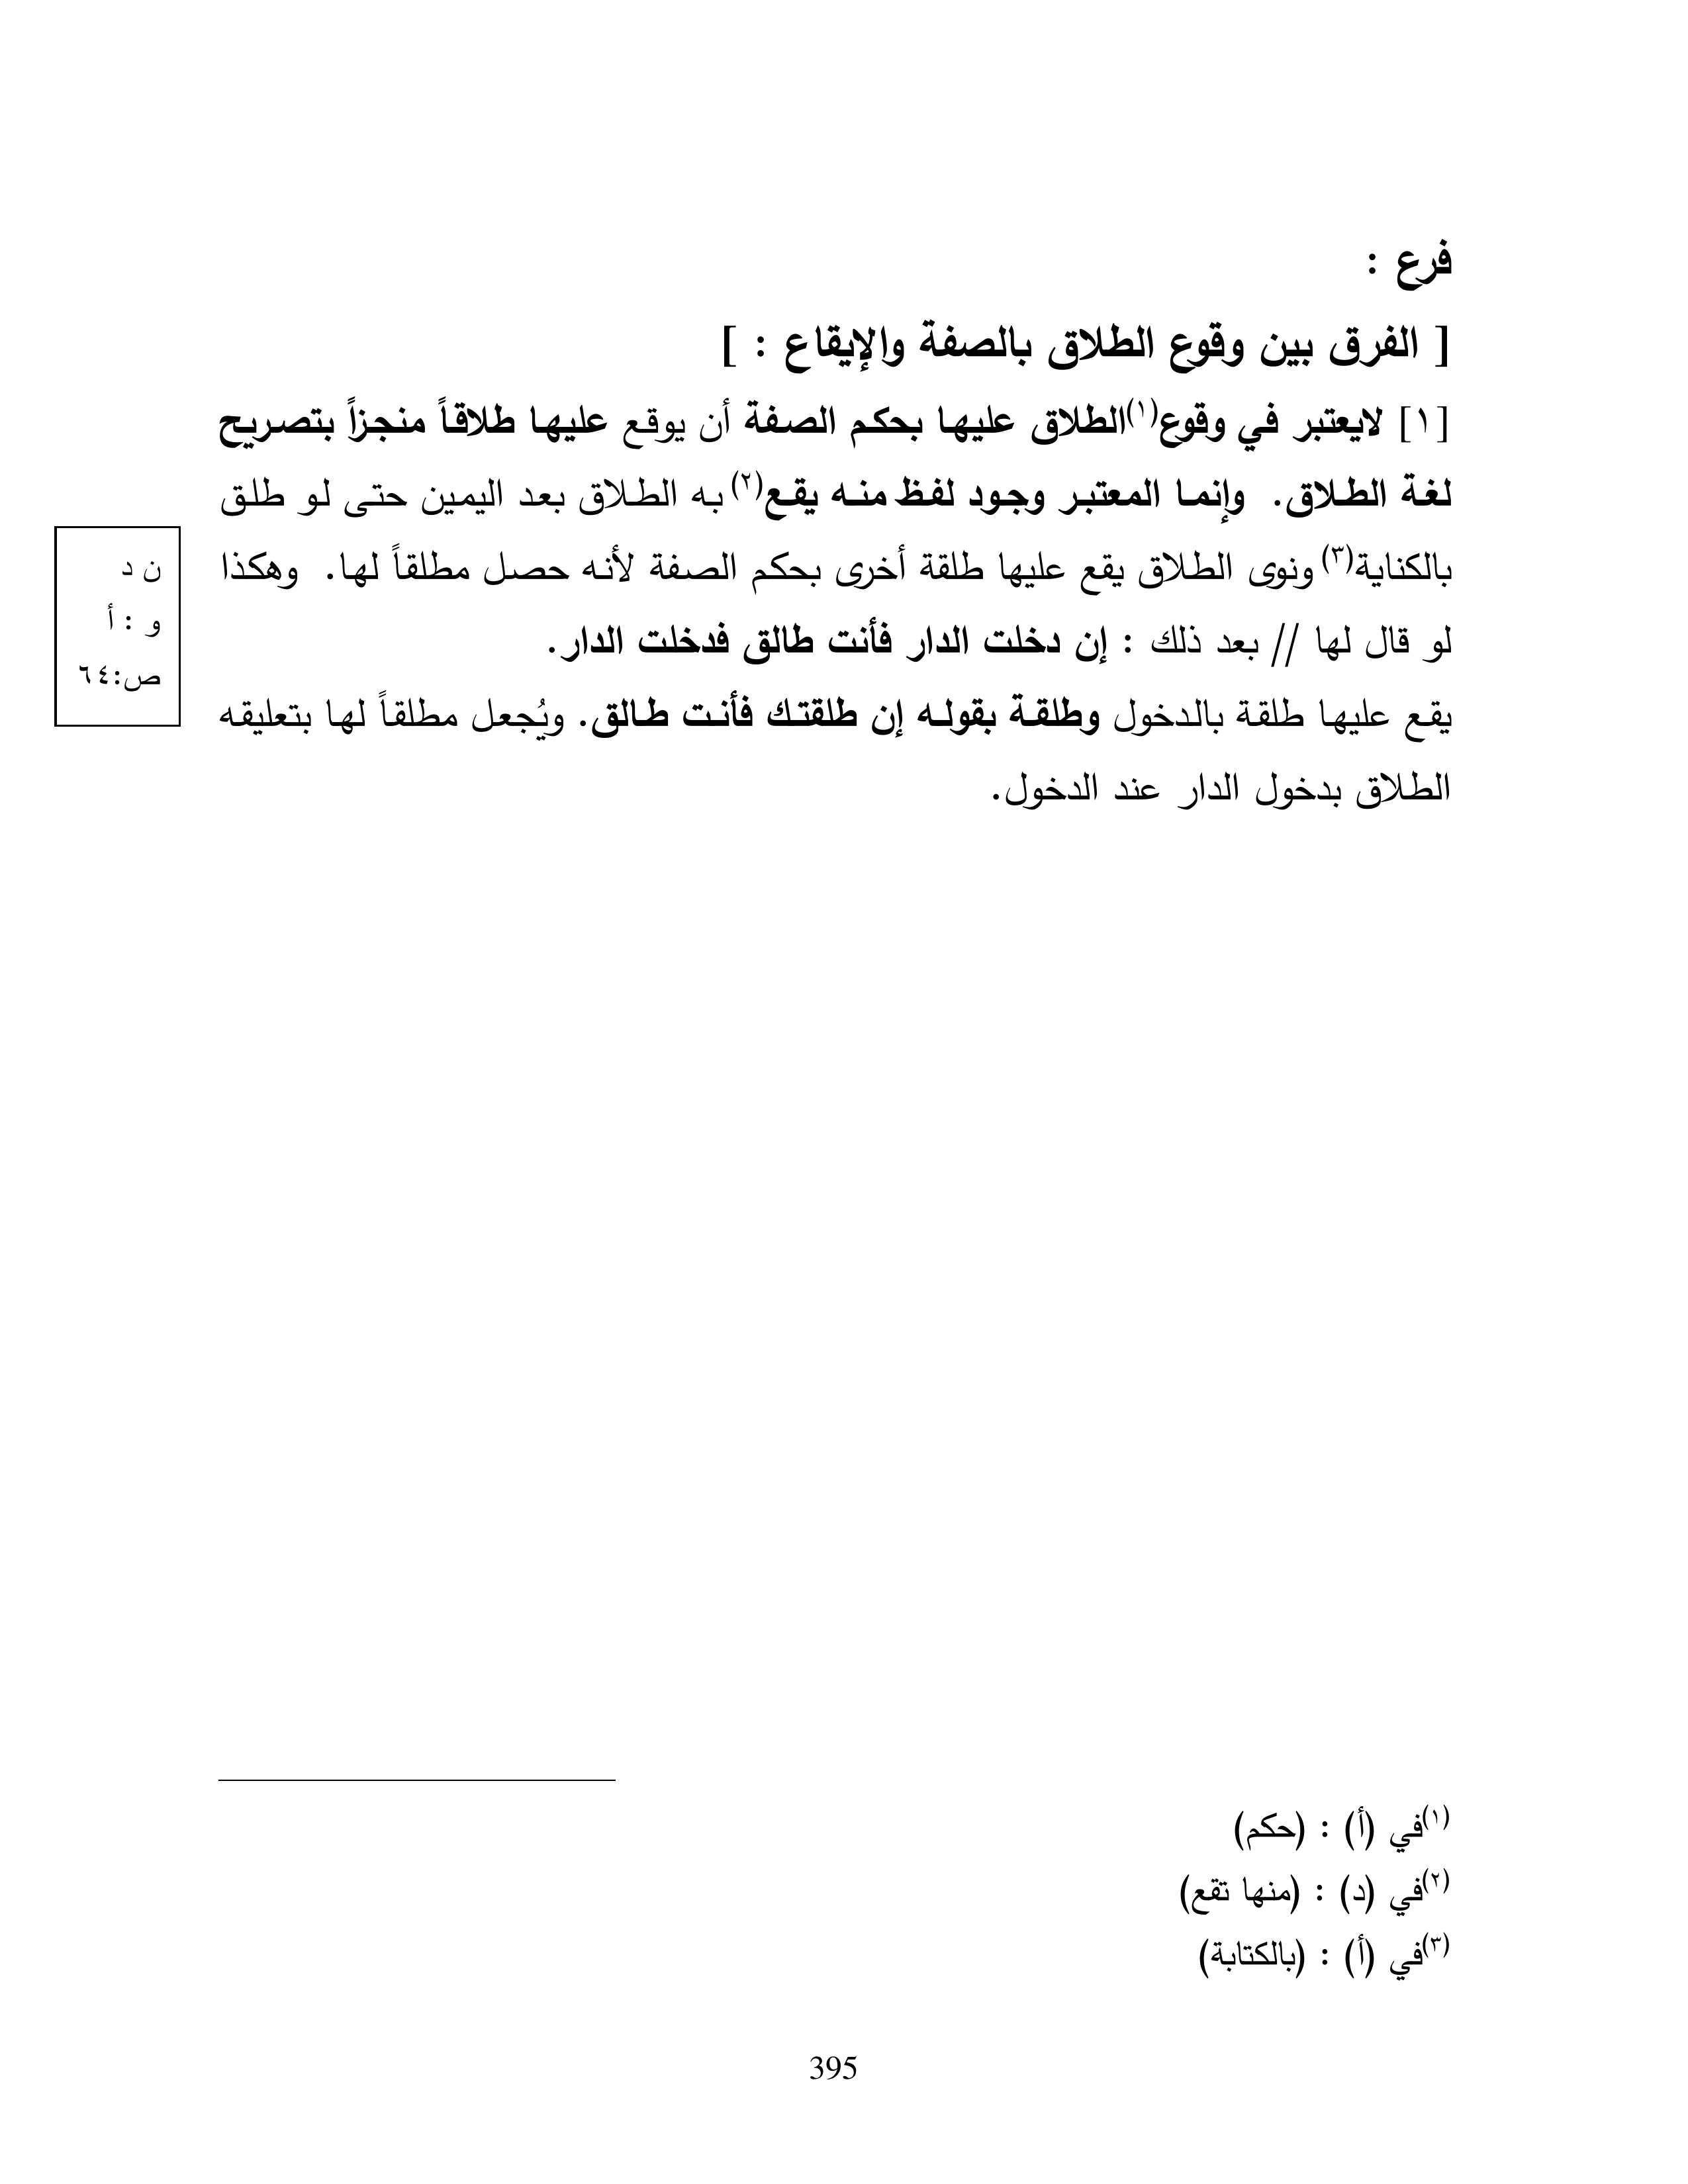 فرع :
[ الفرق بين وقوع الطلاق بالصفة والإيقاع : ]
[١] لايعتبر في وقوع(١)الطلاق عليها بحكم الصفة أن يوقع عليها طلاقاً منجزاً بتصريح
لغة الطلاق. وإنما المعتبر وجود لفظ منه يقع(٢) به الطلاق بعد اليمين حتى لو طلق
بالكناية(٣) ونوى الطلاق يقع عليها طلقة أخرى بحكم الصفة لأنه حصل مطلقاً لها. وهكذا
لو قال لها // بعد ذلك : إن دخلت الدار فأنت طالق فدخلت الدار.
يقع عليها طلقة بالدخول وطلقة بقوله إن طلقتك فأنت طالق. ويُجعل مطلقاً لها بتعليقه
الطلاق بدخول الدار عند الدخول.
ن د
و : أ
ص:٦٤
(١)في (أ) : (حكم)
(٢)في (د) : (منها تقع)
(٣)في (أ) : (بالكتابة)
395